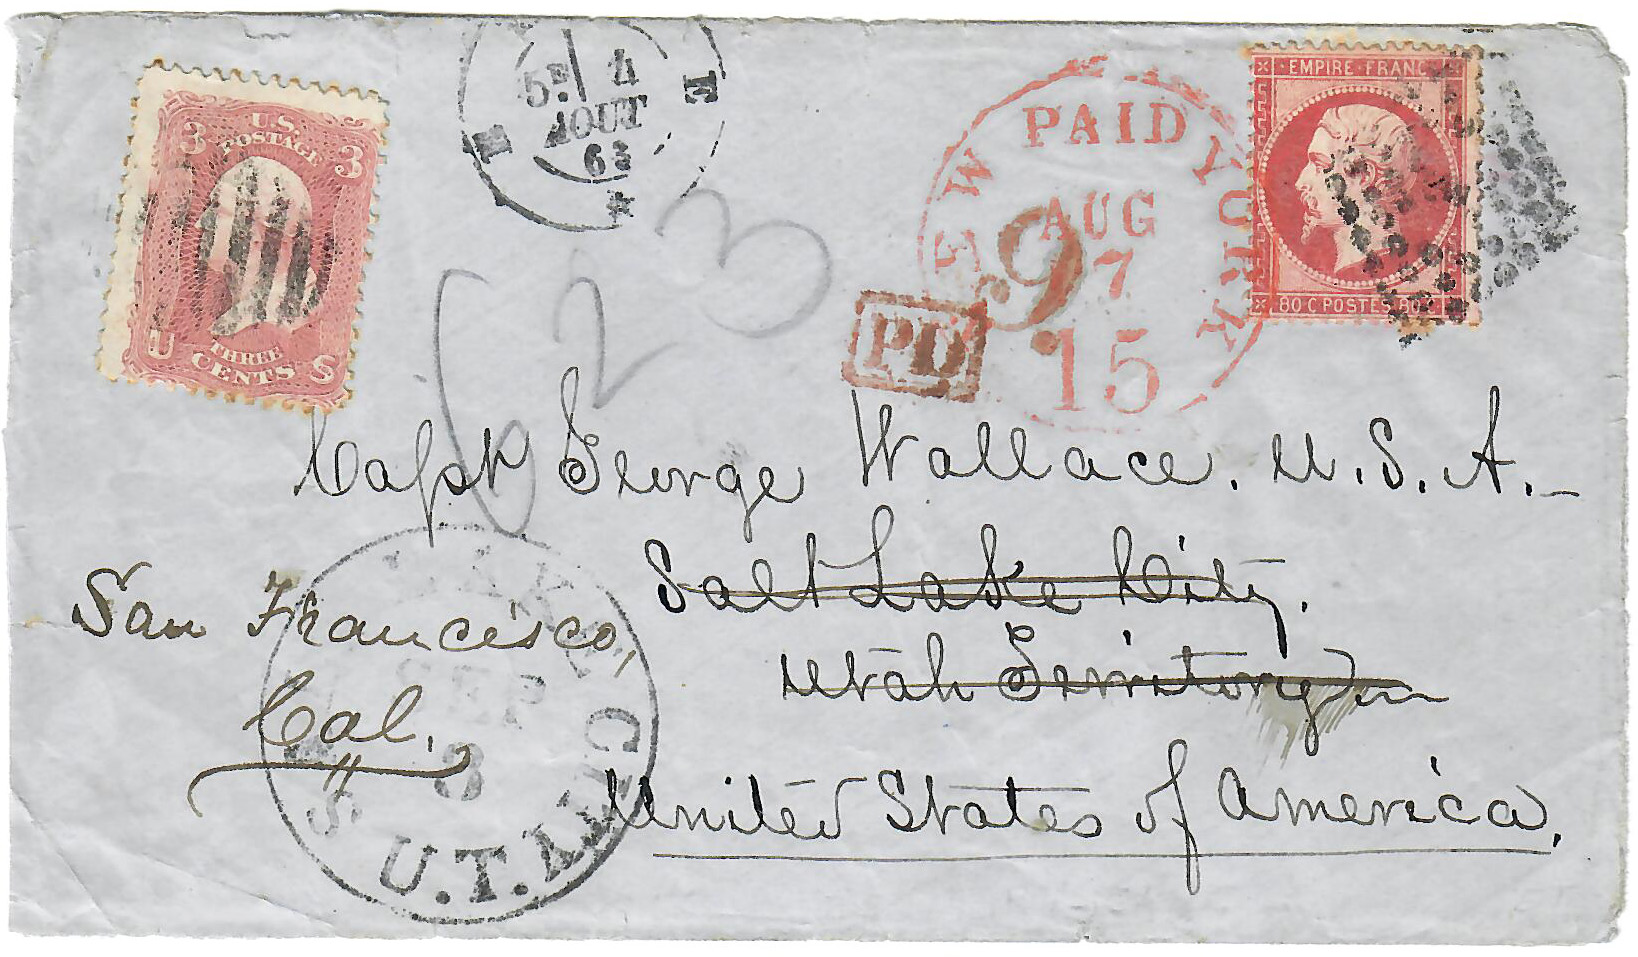 3 U.S. POSTAGE 3
U THREE CENTS S
5E 4
AOUT
63
E
NEW PAID YORK
AUG
7
15
9
PD
EMPIRE FRANC
80 C POSTES 80 C
23
Capt George Wallace. U.S.A.
Salt Lake City.
Utah Territory
United States of America.
San Francisco,
Cal.
LAKE CITY
SEP
8
U.T.